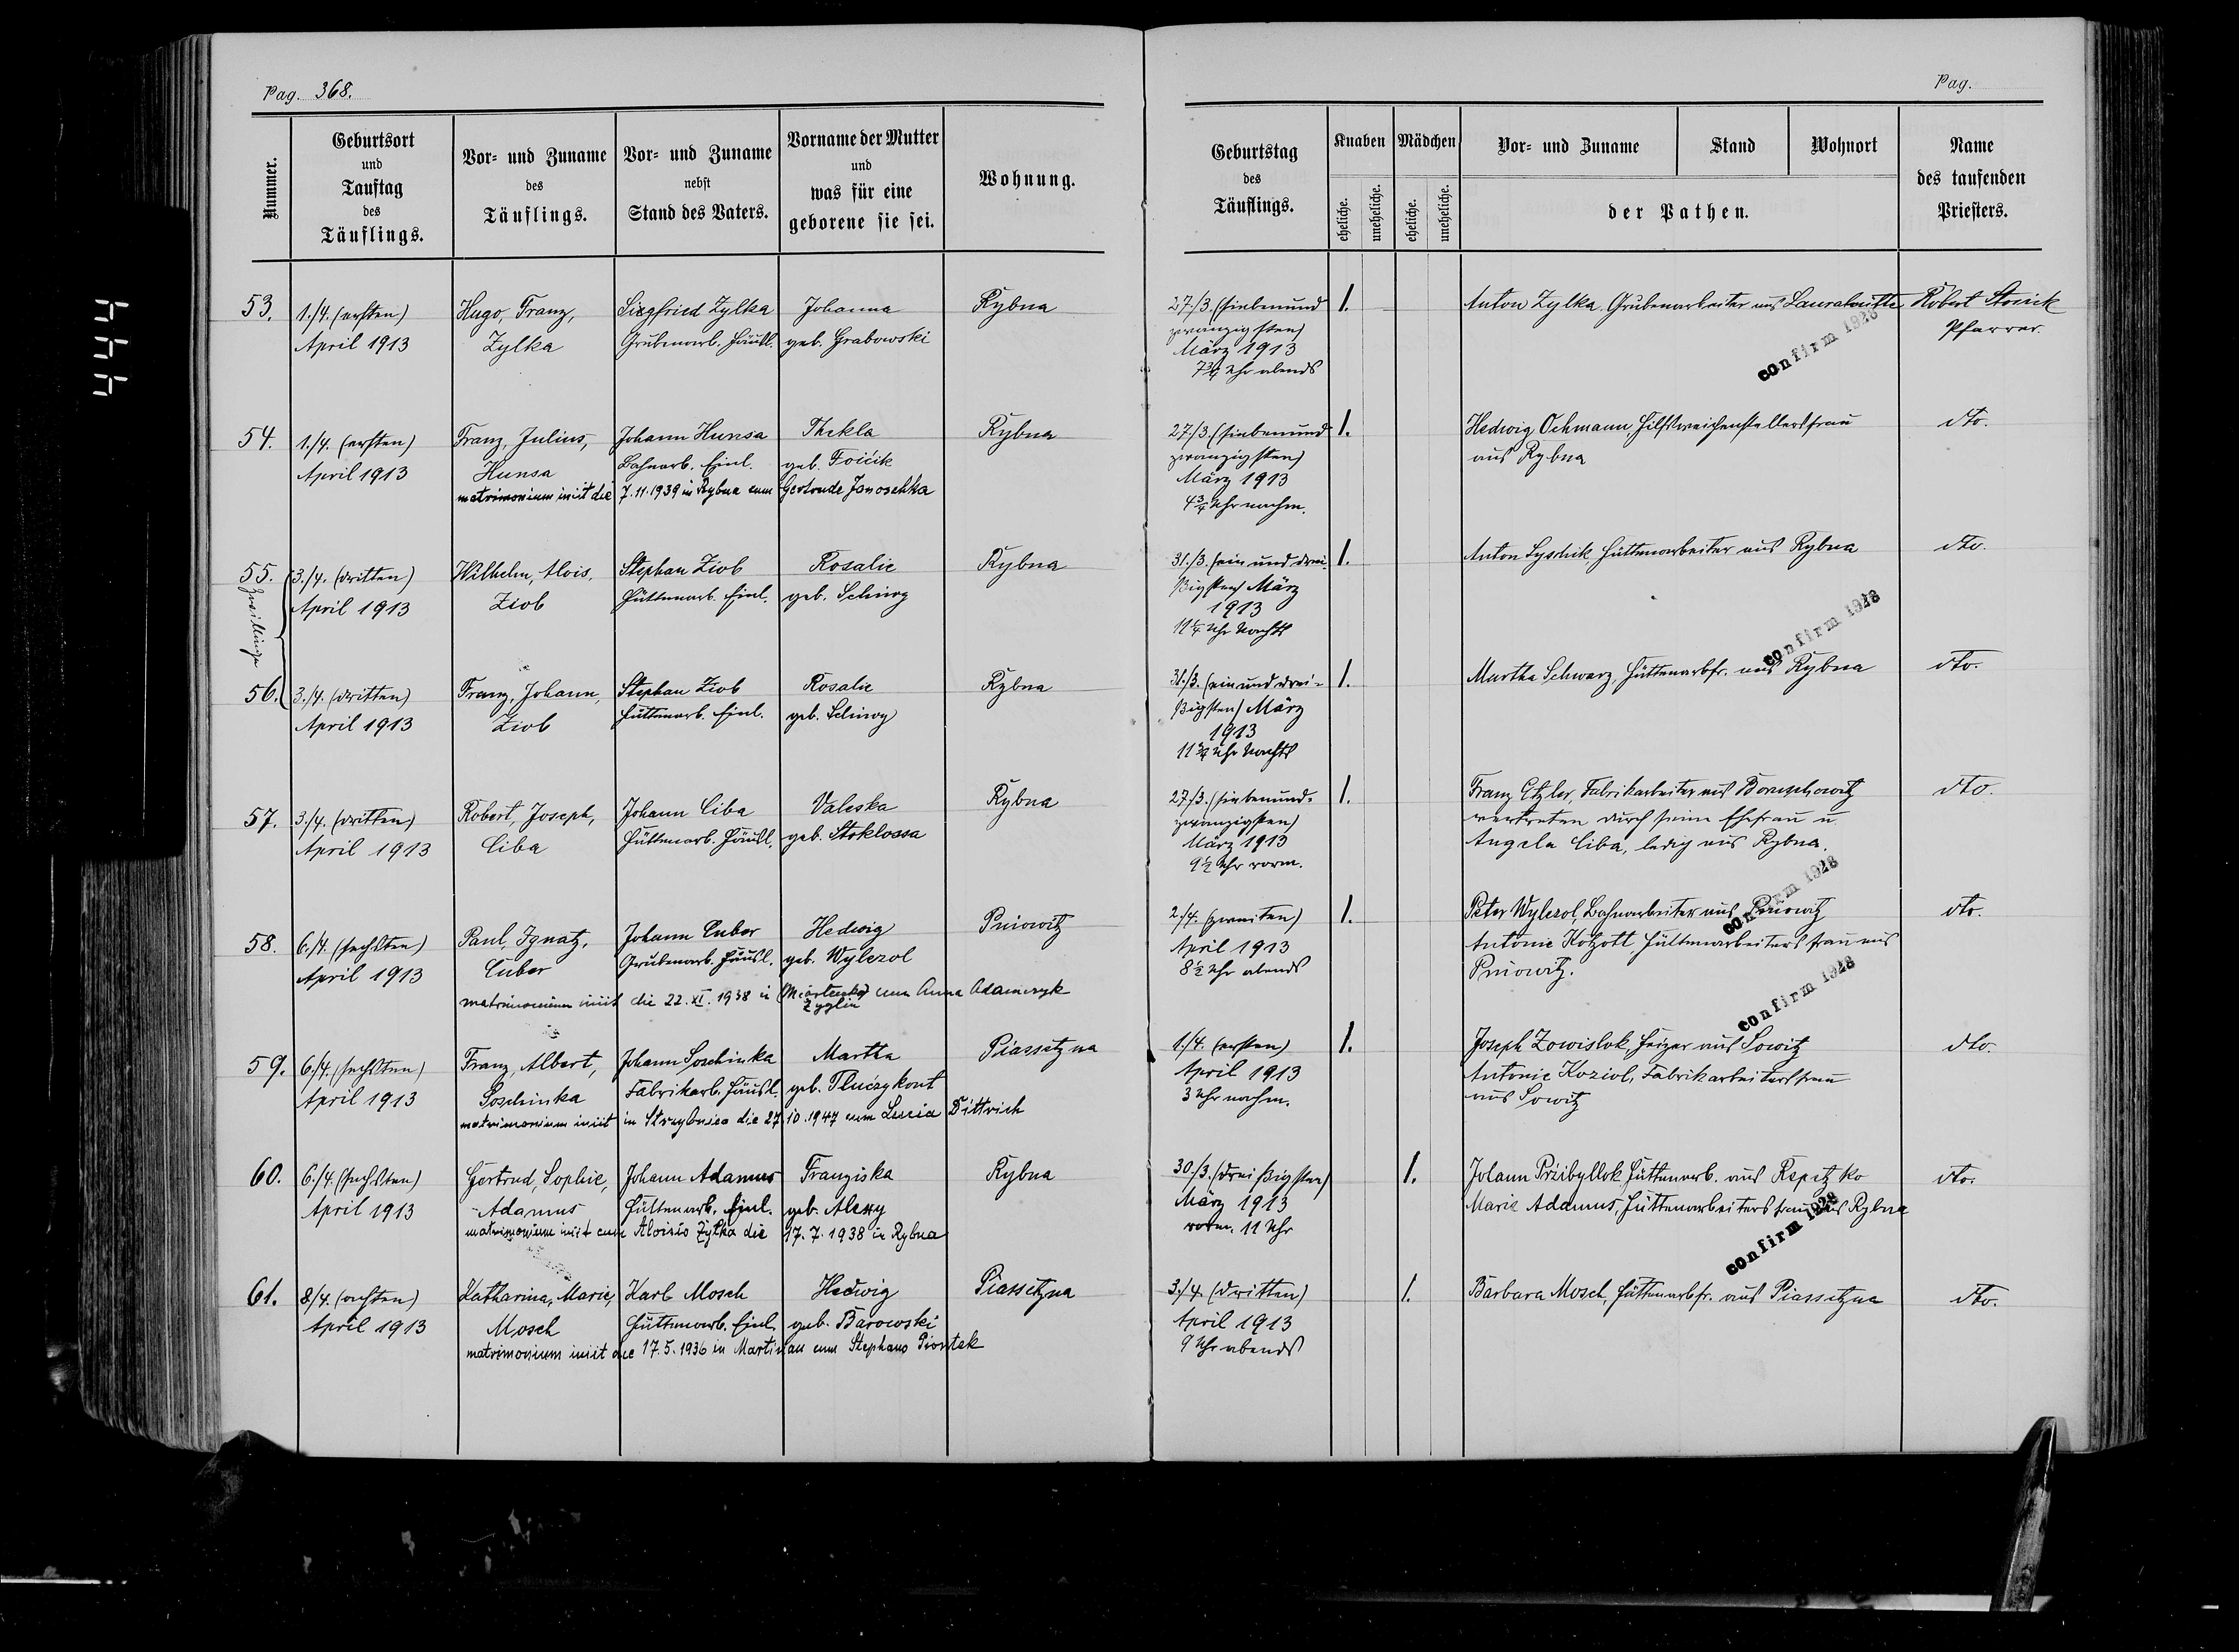 Pag. 368.
Pag.
Nummer.
Geburtsort
und
Tauftag
des
Täuflings.
Vor- und Zuname
des
Täuflings.
Vor- und Zuname
nebst
Stand des Vaters.
Vorname der Mutter
und
was für eine
geborene sie sei.
Wohnung.
Geburtstag
des
Täuflings.
Knaben
eheliche.
uneheliche.
Mädchen
eheliche.
uneheliche.
Vor- und Zuname
Stand
Wohnort
der Pathen.
Name
des taufenden
Priesters.
53.
1./4. (ersten)
April 1913
Hugo, Franz,
Zylka
Siegfried Zylka
Grubenarb. Häusl.
Johanna
geb. Grabowski
Rybna
27./3. (siebenund
zwanzigsten)
März 1913
7 3/4 Uhr abends
1.
Anton Zylka, Grubenarbeiter aus Laurahütte
confirm 1928
Robert
Pfarrer.
54.
1./4. (ersten)
April 1913
Franz, Julius,
Hunsa
Johann Hunsa
Bahnarb. Einl.
Thekla
geb. Foicik
matrimonium iniit die 7.11.1939 in Rybna cum Gertrude Janoschka
Rybna
27./3. (siebenund
zwanzigsten)
März 1913
4 3/4 Uhr nachm.
1.
Hedwig Ochmann Hilfsweichenstellersfrau
aus Rybna
dto.
55.
Zwillinge
3./4. (dritten)
April 1913
Wilhelm, Alois,
Ziob
Stephan Ziob
Hüttenarb. Einl.
Rosalie
geb.
Rybna
31./3. (ein und drei-
ßigsten) März
1913
11 1/4 Uhr Nachts
1.
Anton Lyschik, Hüttenarbeiter aus Rybna
confirm 1928
dto.
56.
3./4. (dritten)
April 1913
Franz, Johann,
Ziob
Stephan Ziob
Hüttenarb. Einl.
Rosalie
geb.
Rybna
31./3. (ein und drei-
ßigsten) März
1913
11 3/4 Uhr Nachts
1.
Martha Schwarz, Hüttenarbfr. aus Rybna
dto.
57.
3./4. (dritten)
April 1913
Robert, Joseph,
Ciba
Johann Ciba
Hüttenarb. Häusl.
Valeska
geb. Stoklossa
Rybna
27./3. (siebenund-
zwanzigsten)
März 1913
9 1/2 Uhr vorm.
1.
Franz Etzler, Fabrikarbeiter aus Boruschowitz
vertreten durch seine Ehefrau u.
Angela Ciba, ledig aus Rybna.
confirm 1928
dto.
58.
6./4. (sechsten)
April 1913
Paul, Ignatz,
Cuber
Johann Cuber
Grubenarb. Häusl.
Hedwig
geb. Wylezol
matrimonium iniit die 22. XI. 1938 in cum Anna Adamczyk
Zyglin
Pniowitz
2./4. (zweiten)
April 1913
8 1/2 Uhr abends
1.
Peter Wylezol, Bahnarbeiter aus Pniowitz
Antonie Kotzott Hüttenarbeitersfrau aus
Pniowitz.
confirm 1928
dto.
59.
6./4. (sechsten)
April 1913
Franz, Albert,
Soschinka
Johann Soschinka
Fabrikarb. Häusl.
Martha
geb. Tluczykont
matrimonium iniit in Strzybnica die 27.10.1947 cum Lucia Dittrich
Piassetzna
1./4. (ersten)
April 1913
3 Uhr nachm.
1.
Joseph Zowislok, Heizer aus Sowitz
Antonie Koziol, Fabrikarbeitersfrau
aus Sowitz
dto.
60.
6./4. (sechsten)
April 1913
Gertrud, Sophie,
Adamus
Johann Adamus
Hüttenarb. Einl.
Franziska
geb. Alexy
matrimonium iniit cum Aloisio Zylka die 17.7.1938 in Rybna
Rybna
30./3. (dreißigsten)
März 1913
vorm. 11 Uhr
1.
Johann Priibyllok, Hüttenarb. aus Repetzko
Marie Adamus, Hüttenarbeitersfrau aus Rybna
confirm 1928
dto.
61.
8./4. (achten)
April 1913
Katharina, Marie,
Mosch
Karl Mosch
Hüttenarb. Einl.
Hedwig
geb. Barowski
matrimonium iniit die 17.5.1936 in Martinau cum Stephano Piontek
Piassetzna
3./4. (dritten)
April 1913
9 Uhr abends
1.
Barbara Mosch, Hüttenarbfr. aus Piassetzna
dto.